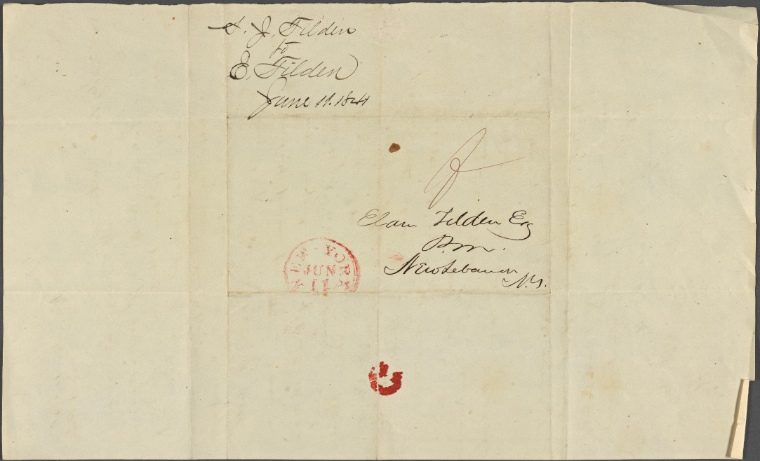 S. J. Tilden
to
E. Tilden
June 11. 1841
F
Elam Tilden Esq
P.M.
New Lebanon
N.Y.
NEW-YORK
JUN
11